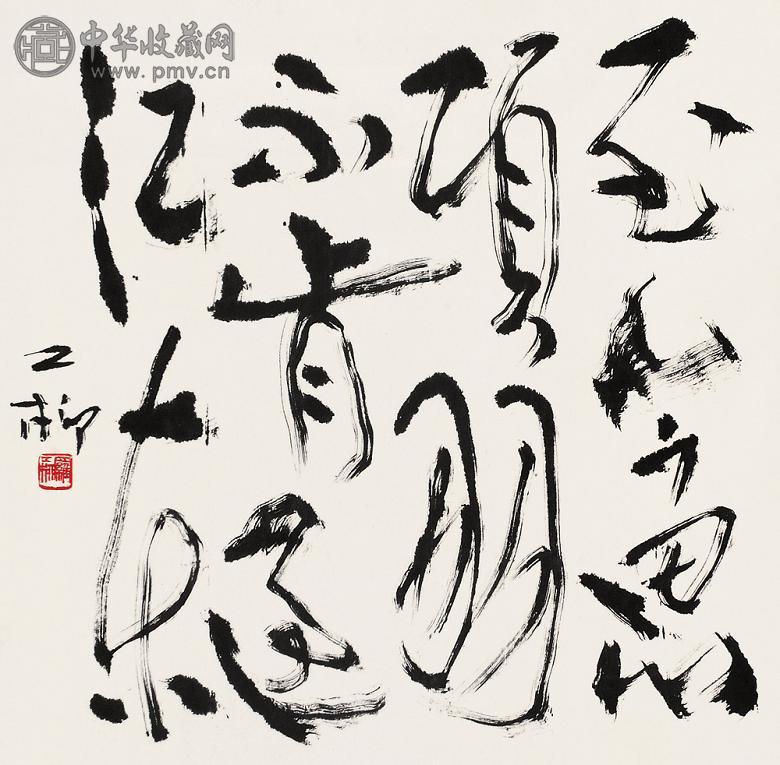 中华收藏网
www.pmv.cn
至今思
項羽
不肯過
江東